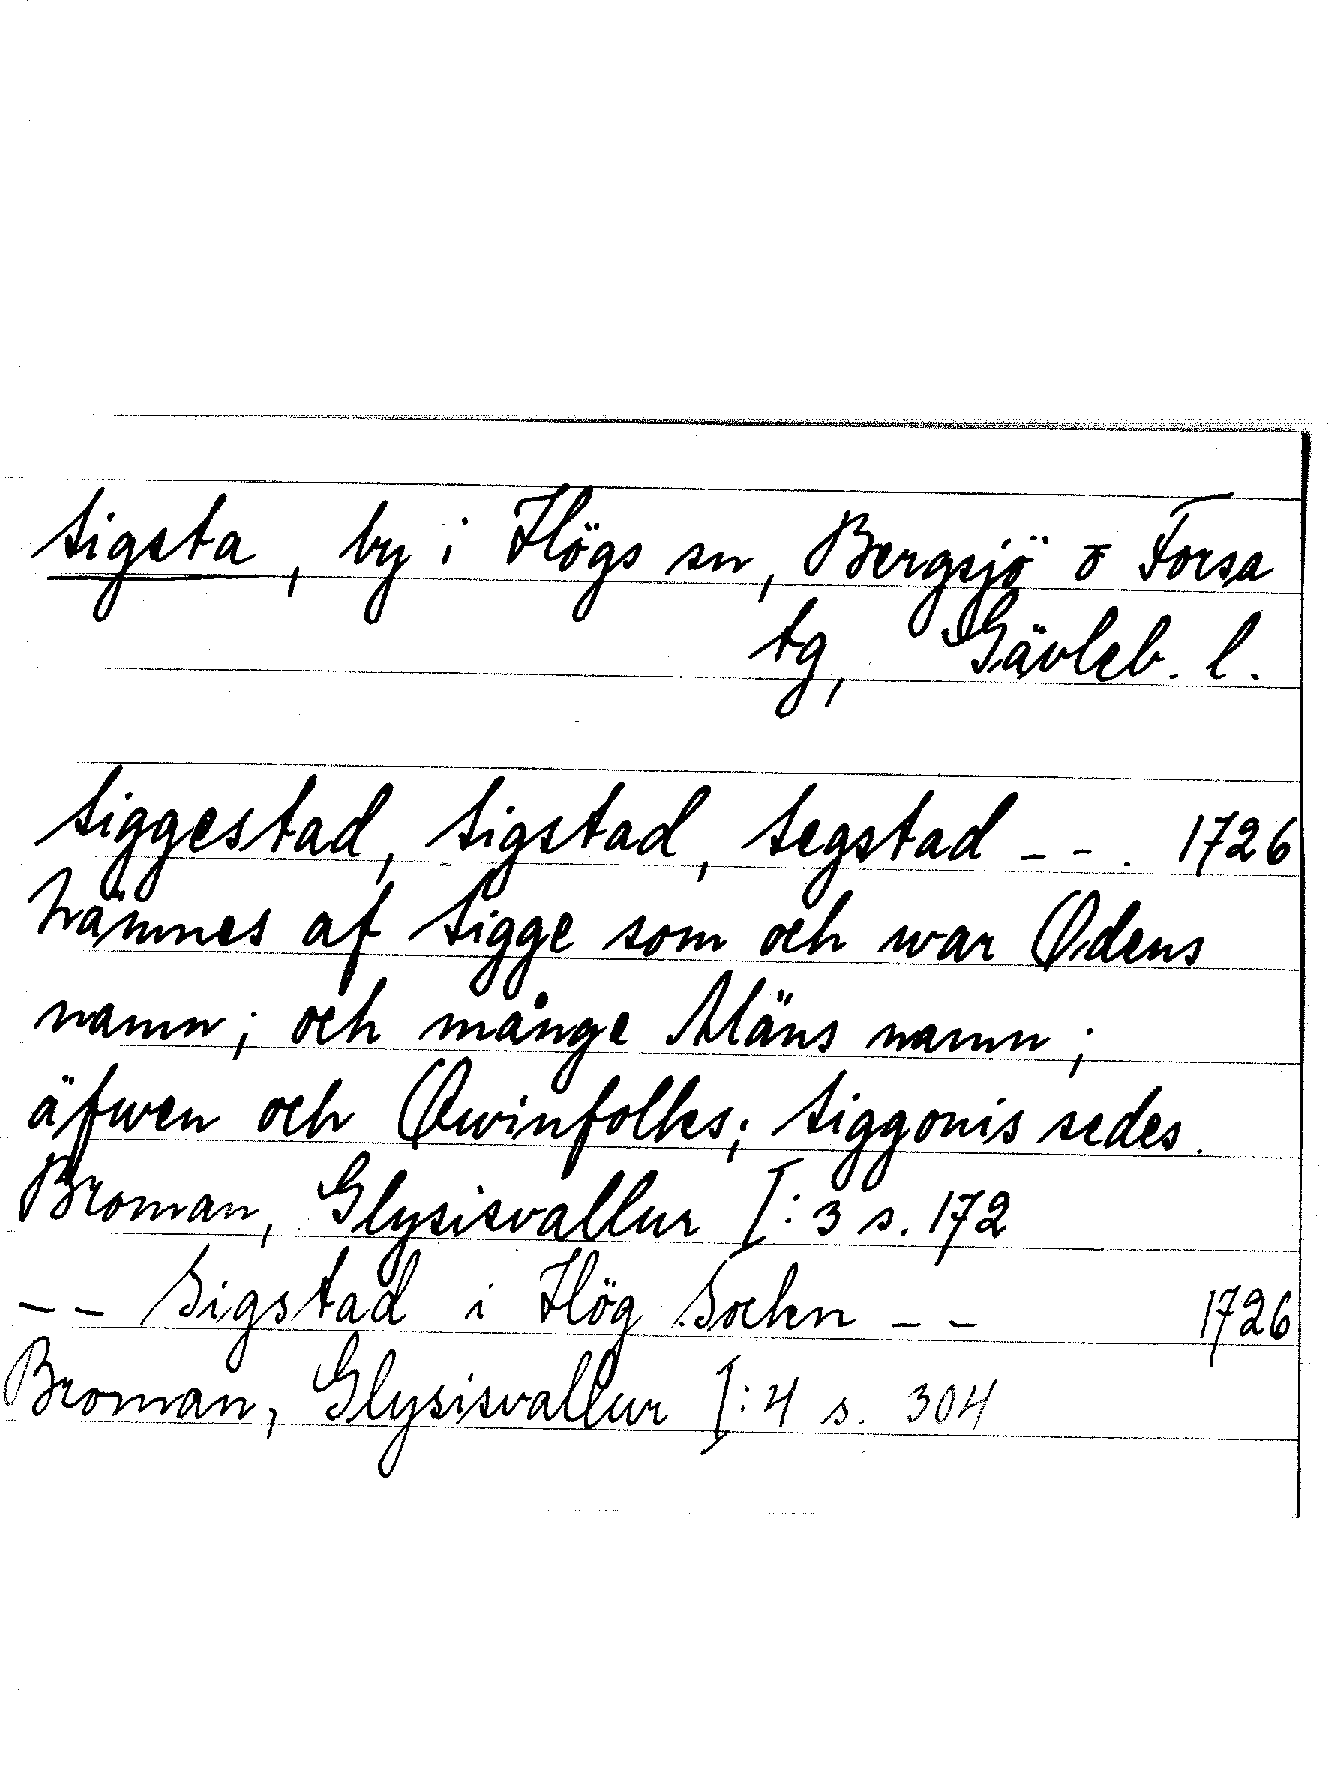 Sigsta, by i Högs sn, Bergsjö o Forsa
tg, Gävleb. l.
Siggestad, Sigstad, Segstad - - . 1726
nämnes af Sigge som och war Odens
namn; och månge Mäns namn;
äfwen och Qwinfolks; Siggonis sedes.
Broman, Glysisvallur I:3 s. 172
- - Sigstad i Hög Sockn - - 1726
Broman, Glysisvallur I:4 s. 304